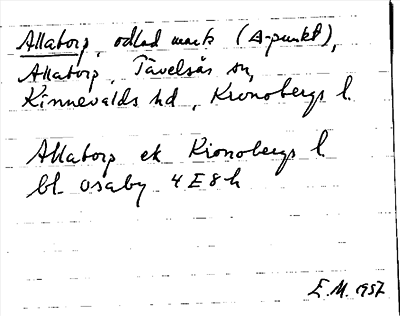 Allatorp, odlad mark (Δ-punkt),
Allatorp, Tävelsås sn,
Kinnevalds hd, Kronobergs l.
Allatorp ek Kronobergs l
bl. Osaby 4E8h
E.M. 1957